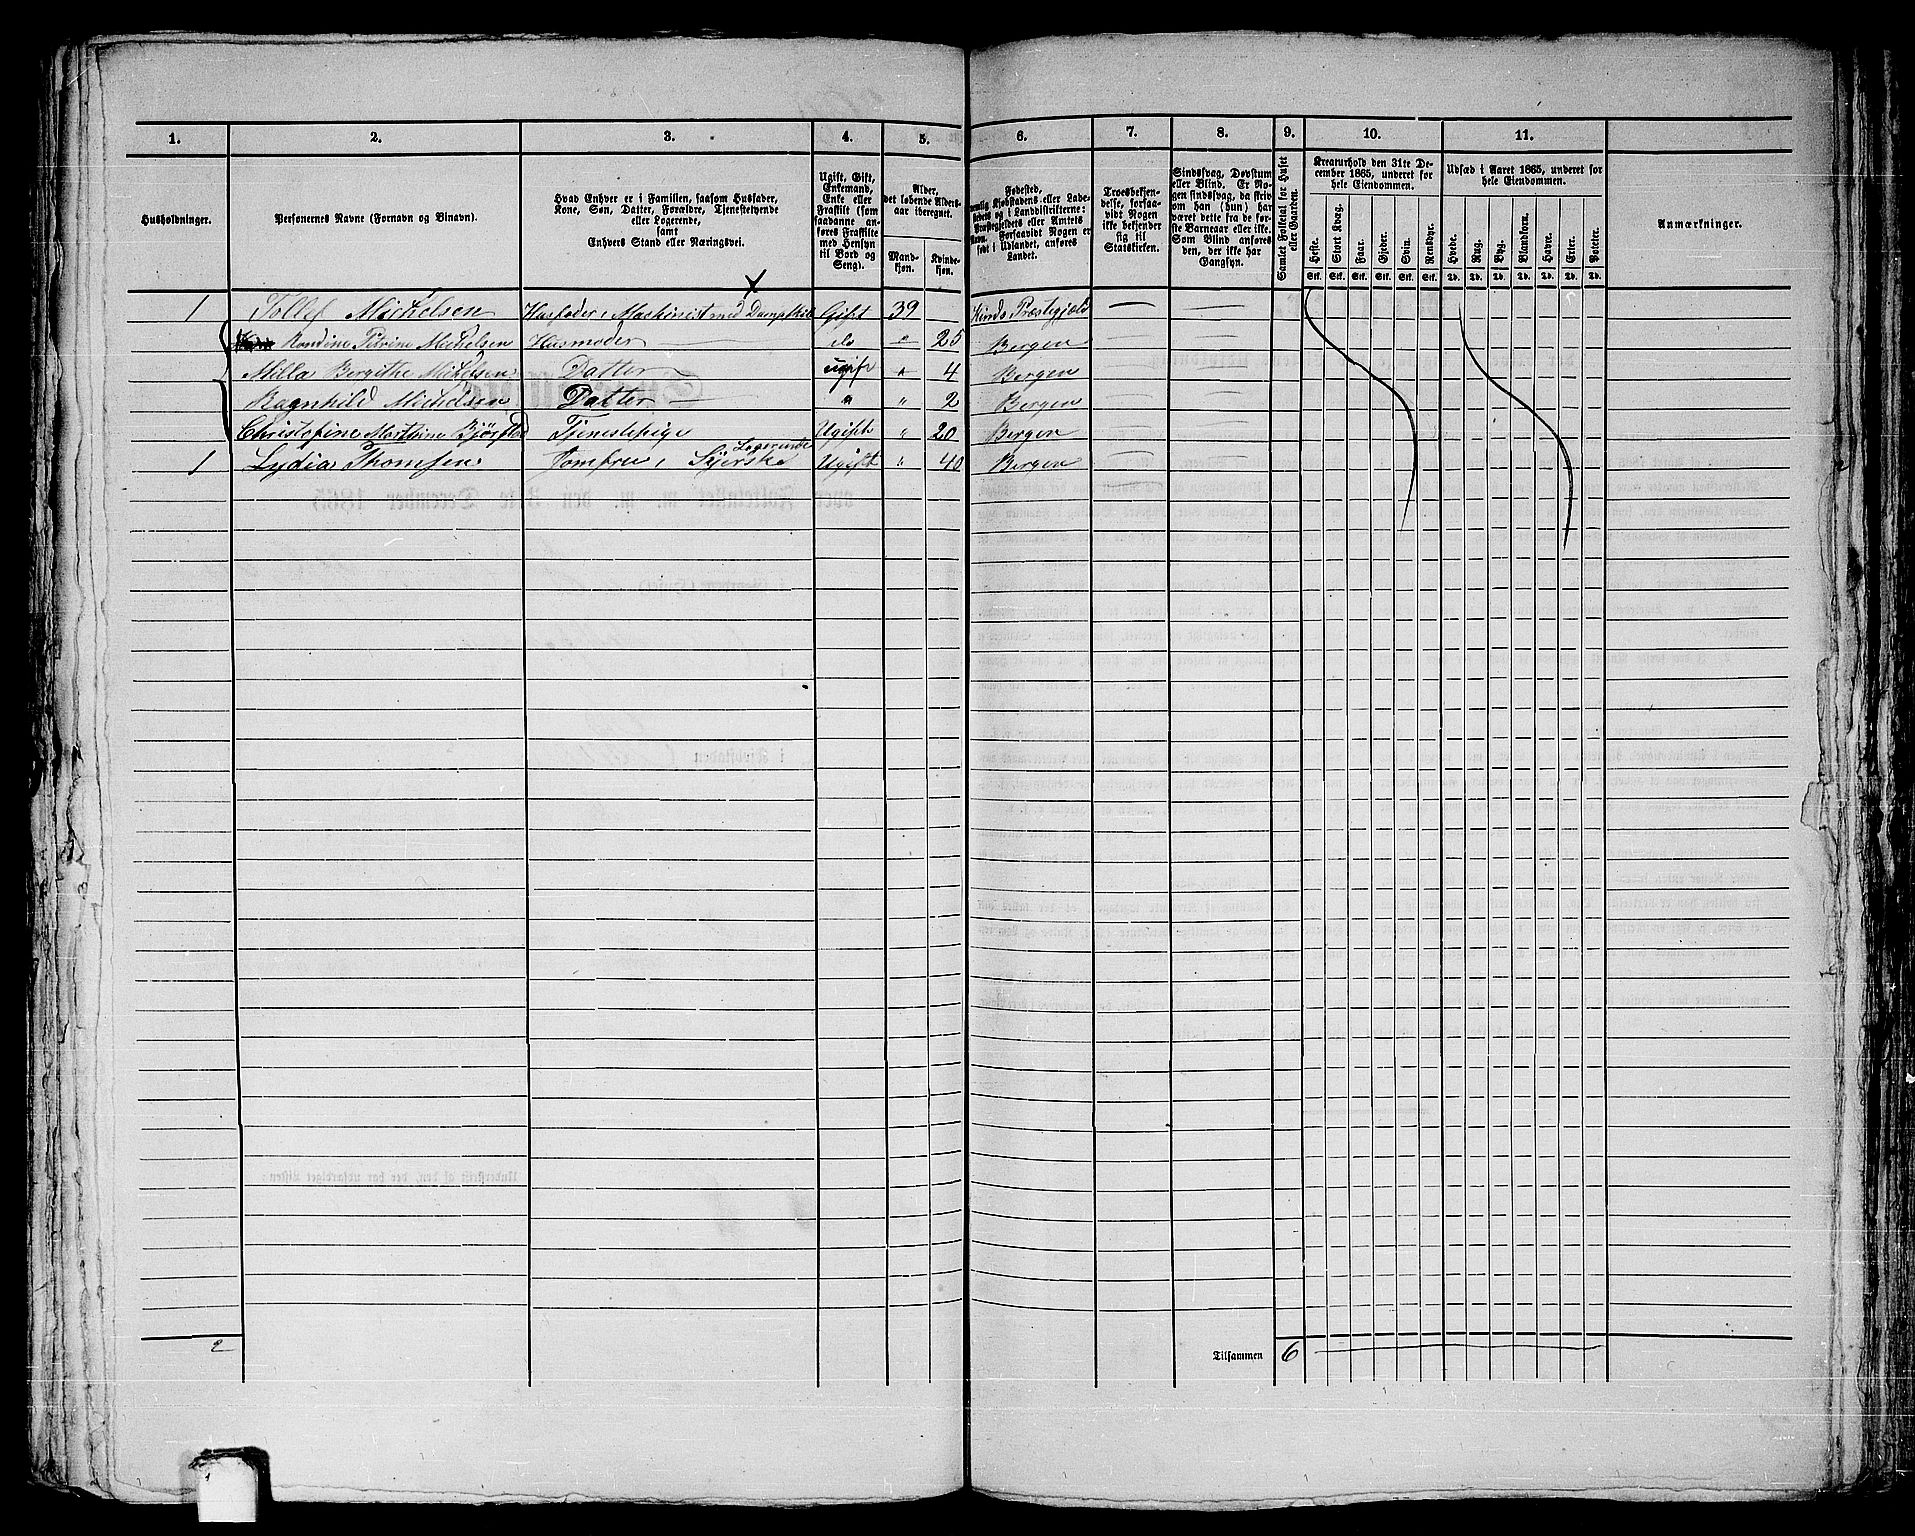 1. 2. 3. 4. 5. 6. 7. 8. 9. 10. 11.
Husholdninger.
Personernes Navne (Fornavn og Binavn).
Hvad Enhver er i Familien, saasom Husfader,
Kone, Søn, Datter, Forældre, Tjenestetyende
eller Logerende,
samt
Enhvers Stand eller Næringsvei.
Ugift, Gift,
Enkemand,
Enke eller
Fraskilt (som
saadanne an-
føres Fraskilte
med Hensyn
til Bord og
Seng).
Alder,
det løbende Alders-
aar iberegnet.
Mand-
kjøn.
Kvinde-
kjøn.
Fødested,
nemlig Kjøbstadens eller Lade-
stedets og i Landdistrikterne:
Præstegjeldets eller Amtets
Navn. Forsaavidt Nogen er
født i Udlandet, anføres
Landet.
Troesbekjen-
delse, forsaa-
vidt Nogen
ikke bekjender
sig til
Statskirken.
Sindssvag, Døvstum
eller Blind. Er No-
gen sindssvag, da skriv
han (hun) har
været dette fra de før-
ste Barneaar eller ikke.
Som Blind anføres
den, der ikke har
Gangsyn.
Samlet Folketal for Huset
eller Gaarden.
Kreaturhold den 31te De-
cember 1865, underet for
hele Eiendommen.
Heste. Stort Kvæg. Faar. Gjeder. Svin. Rensdyr.
Stk. Stk. Stk. Stk. Stk. Stk.
Udsæd i Aaret 1865, underet for
hele Eiendommen.
Hvede. Rug. Byg. Blandkorn. Havre. Erter. Poteter.
Td. Td. Td. Td. Td. Td. Td.
Anmærkninger.
1 Tollef Michelsen Husfader, Maskinist med Dampskib Gift 39 Kinds Præstegjæld
Rondine Petrine Michelsen Husmoder do " 25 Bergen
Milla Bergithe Michelsen Datter ugift " 4 Bergen
Ragnhild Michelsen Datter " " 2 Bergen
Christofine Marthine Bjørstad Tjenestepige Ugift " 20 Bergen
1 Lydia Thomsen Jomfru, Syerske Logerende Ugift " 40 Bergen
2 Tilsammen 6